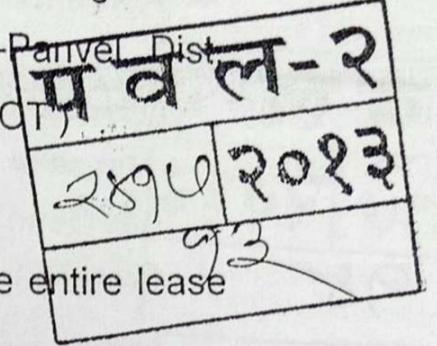 -Panvel Dist
प व ल-२
OT)
२४१५ २०१३
१३
e entire lease